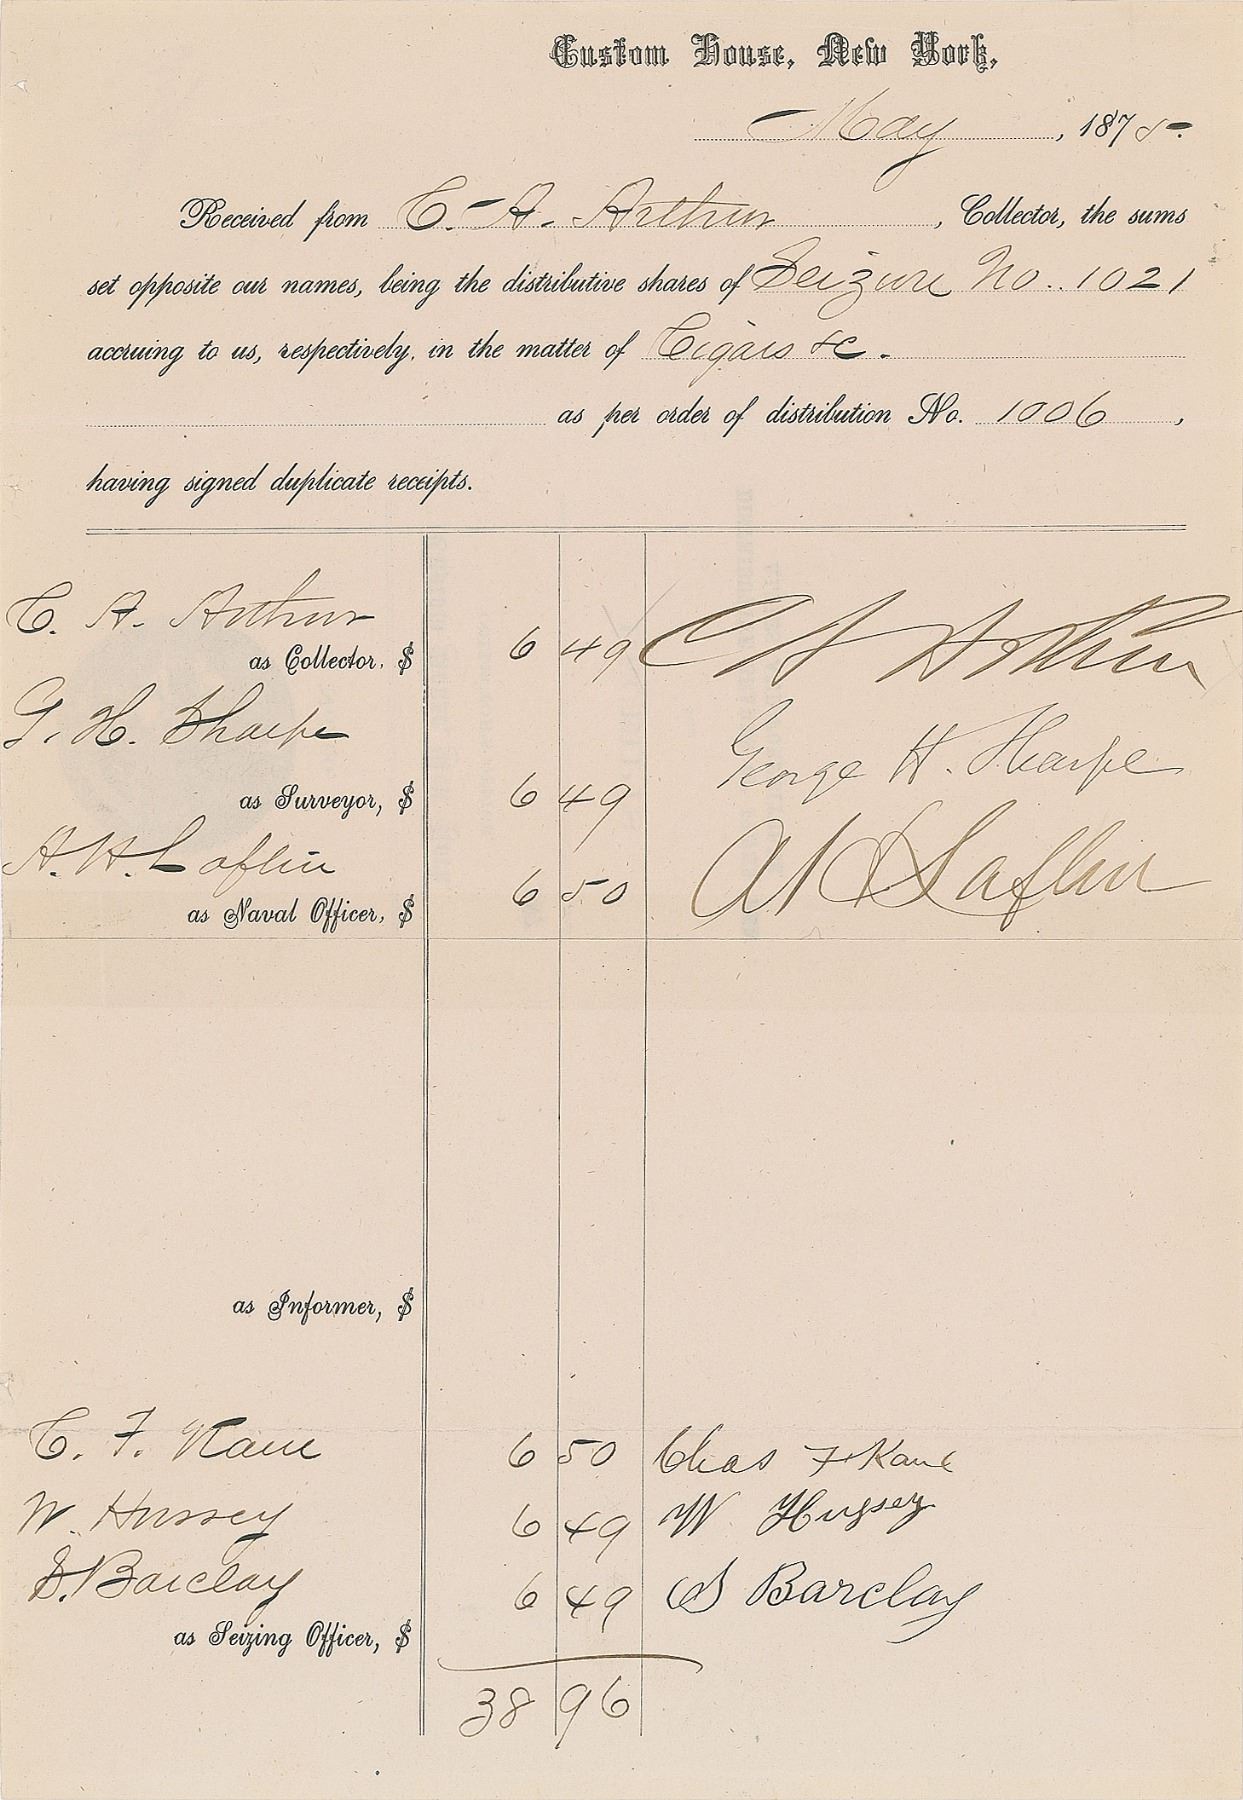 Custom House, New York,
May, 1875.
Received from C. A. Arthur, Collector, the sums
set opposite our names, being the distributive shares of Seizure No. 1021
accruing to us, respectively, in the matter of Cigars &c.
as per order of distribution No. 1006,
having signed duplicate receipts.
C. A. Arthur
as Collector, $ 6 49 C A Arthur
G. H. Sharpe
as Surveyor, $ 6 49 George H. Sharpe
A. H. Laflin
as Naval Officer, $ 6 50 A H Laflin
as Informer, $
C. F. Kane 6 50 Chas F Kane
W. Hussey 6 49 W Hussey
S. Barclay 6 49 S Barclay
as Seizing Officer, $
38 96